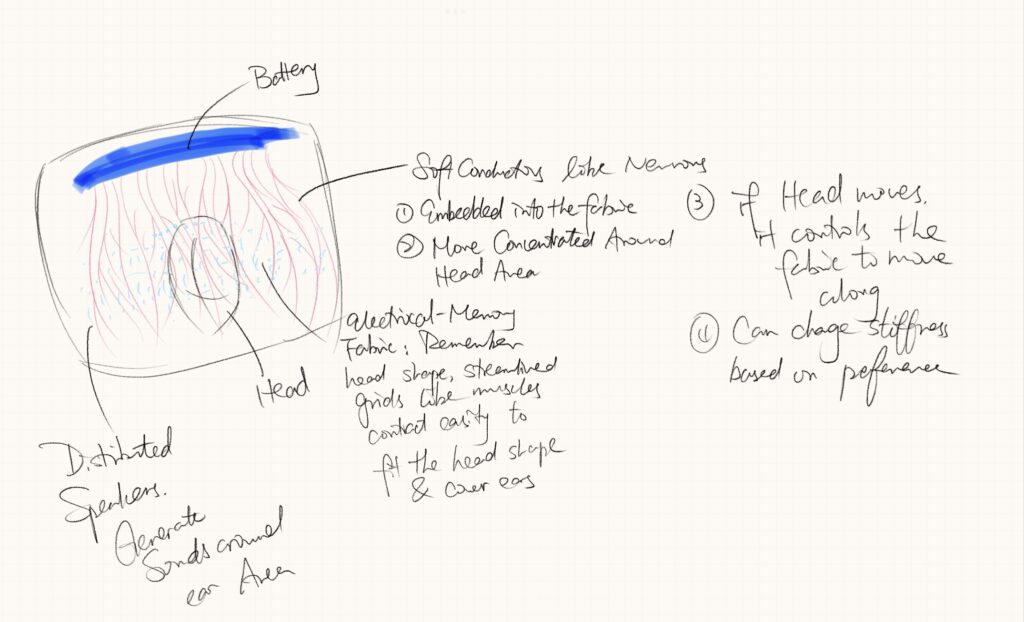 Battery
Soft Conductors like Neurons
① Embedded into the fabric
② More Concentrated Around
Head Area
electrical-Memory
Fabric: Remember
head shape, streamlined
grids like muscles
contract easity to
fit the head shape
& cover ears
Head
Distributed
Speakers.
Generate
Sounds around
ear Area
③ if Head moves.
it controls the
fabric to move
along
④ Can chage stiffness
based on preference